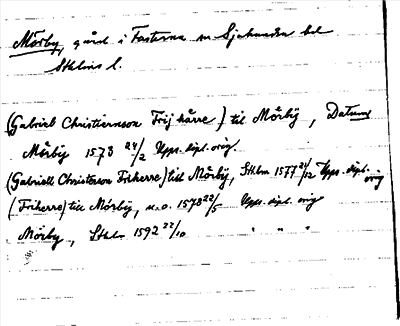 Mörby, gård i Fasterna sn Sjuhundra hd
Sthlms l.
(Gabriel Christiernson Frijhärre) til Mörbÿ, Datum
Mörby 1573 24/2 Upps. dipl. orig.
(Gabriell Christerson Friherre) till Mörbÿ, Sthlm 1577 24/12 Upps. dipl. orig
(Friherre) till Mörbÿ, u.o. 1578 22/5 Upps. dipl. orig
Mörby, Sthlm 1592 22/10 " " "